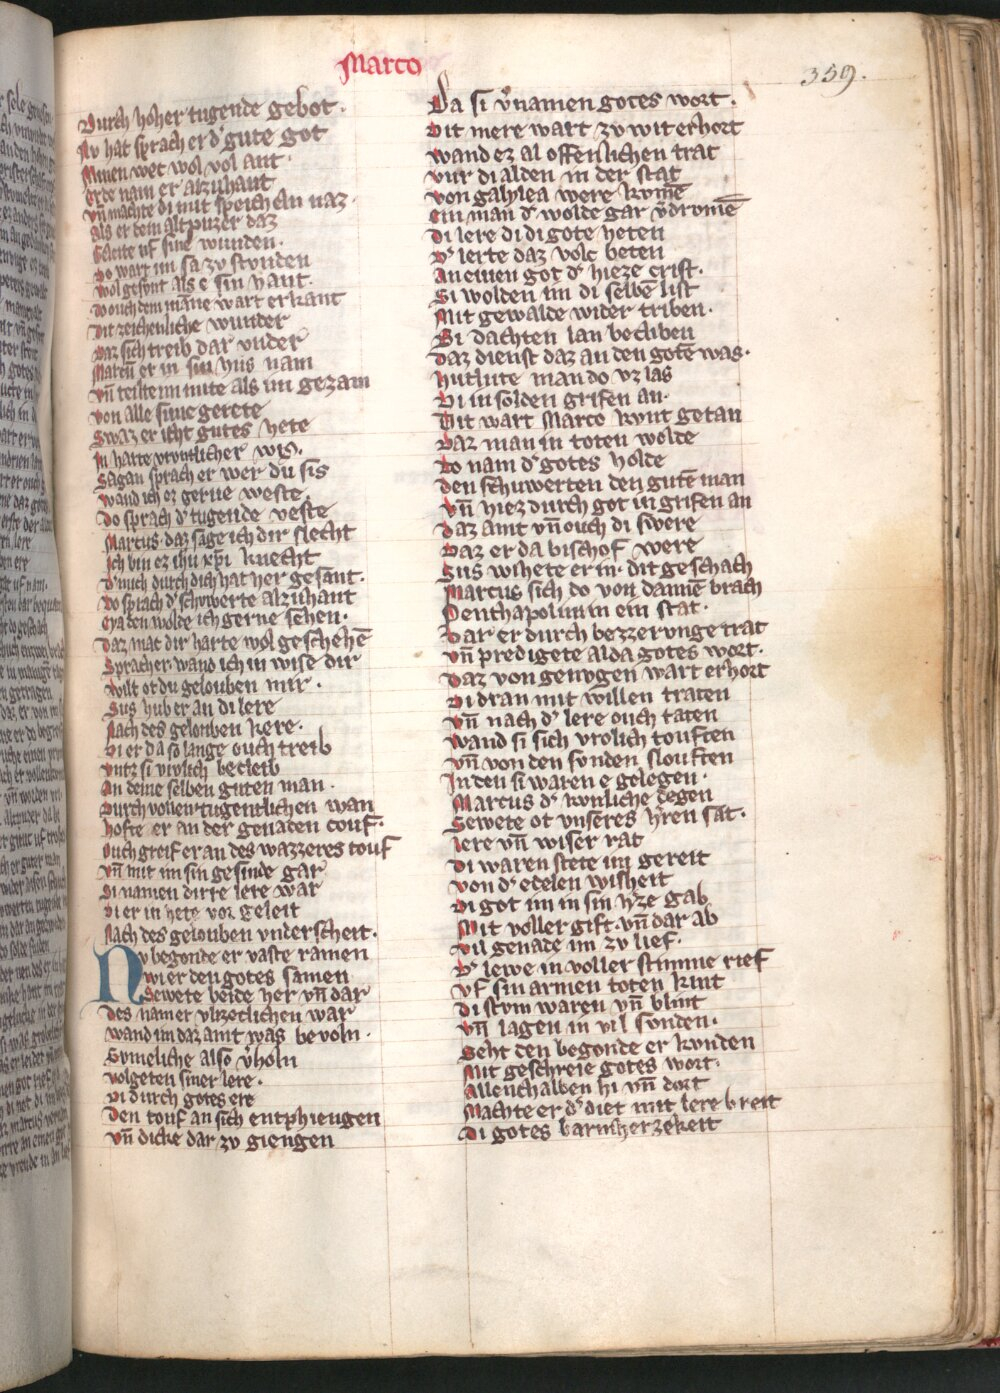 Marco
359.
Durch hoher tugende gebot.
Nv hat sprach er d' gute got
Minen wec wol vol ant.
erde nam er alzuhant
vn̄ machte di mit speicheln naz.
Als er dem altpuzer daz
Leite vf sine wunden.
Do wart im sa zv stvnden
wol gesvnt als e sin hant.
do ouch dem māne wart erkant
Dit zeichenliche wunder
Daz sich treib dar vnder
Marcū er in sin hus nam
vn̄ teilte im mite als im gezam
von alle sime gerete
Swaz er icht gutes hete
In harte vrvntlicher wis.
Sagan sprach er wer du sis
wand ich ez gerne weste.
Do sprach d' tugende veste
Marcus. daz sage ich dir slecht
Ich bin ez ihū xp̄i knecht
d' mich durch dich hat her gesant.
Do sprach d' schvwerte alzuhant
Eya den wolde ich gerne sehen.
Daz mac dir harte wol geschehē
Sprach er wand ich in wise dir
wilt ot du gelouben mir.
Sus hub er an di lere
Nach des gelouben kere.
Di er da so lange ouch treib
vntz si vrolich becleib
An deme selben guten man.
Durch vollen tugentlichen wan
hofte er an der genaden couf.
Ouch greif er an des wazzeres touf
vn̄ mit im sin gesinde gar
Di namen dirre lere war
Di er in hete vor geleit
Nach des gelouben vnderscheit.
Nv begonde er vaste ramen
wi er den gotes samen
Sewete beide her vn̄ dar
Des nam er vlizeclichen war
wand im daz amt was bevoln.
Svmeliche also v'holn
volgeten siner lere.
Di durch gotes ere
Den touf an sich entphiengen
vn̄ dicke dar zv giengen
Da si v'namen gotes wort.
Dit mere wart zv wit erhort
wand ez al offenlichen trat
vur di alden in der stat
von galylea were kvmē
ein man d' wolde gar v'drumē
Di lere di di gote heten
D' lerte daz volc beten
An einen got d' hieze crist.
Si wolden im di selbē list
Mit gewalde wider triben.
Si dachten lan becliben
Daz dienst daz an den gotē was.
hutlute man do vz las
Di in solden grifen an.
Dit wart Marco kvnt getan
Daz man in toten wolde
Do nam d' gotes holde
den schuwerten den gutē man
vn̄ hiez durch got in grifen an
Daz amt vn̄ ouch di swere
Daz er da bischof were
Sus wihete er in. dit geschach
Marcus sich do von dannē brach
Penthapolim in ein stat.
Dar er durch bezzervnge trat
vn̄ predigete alda gotes wort.
Daz von genvgen wart erhort
Di dran mit willen traten
vn̄ nach d' lere ouch taten
wand si sich vrolich touften
vn̄ von den svnden slouften
In den si waren e gelegen.
Marcus d' kvnliche degen
Sewete ot vnseres h'ren sat.
lere vn̄ wiser rat
Di waren stete im gereit
von d' edelen wisheit
Di got im in sin h'ze gab
Mit voller gift. vn̄ dar ab
vil genade im zv lief.
D' lewe in voller stimme rief
vf sin armen toten kint
Di stvm waren vn̄ blint
vn̄ lagen in vil svnden.
Seht den begonde er kvnden
Mit geschreie gotes wort.
Allenthalben hi vn̄ dort
Machte er d' diet mit lere breit
Di gotes barmherzekeit